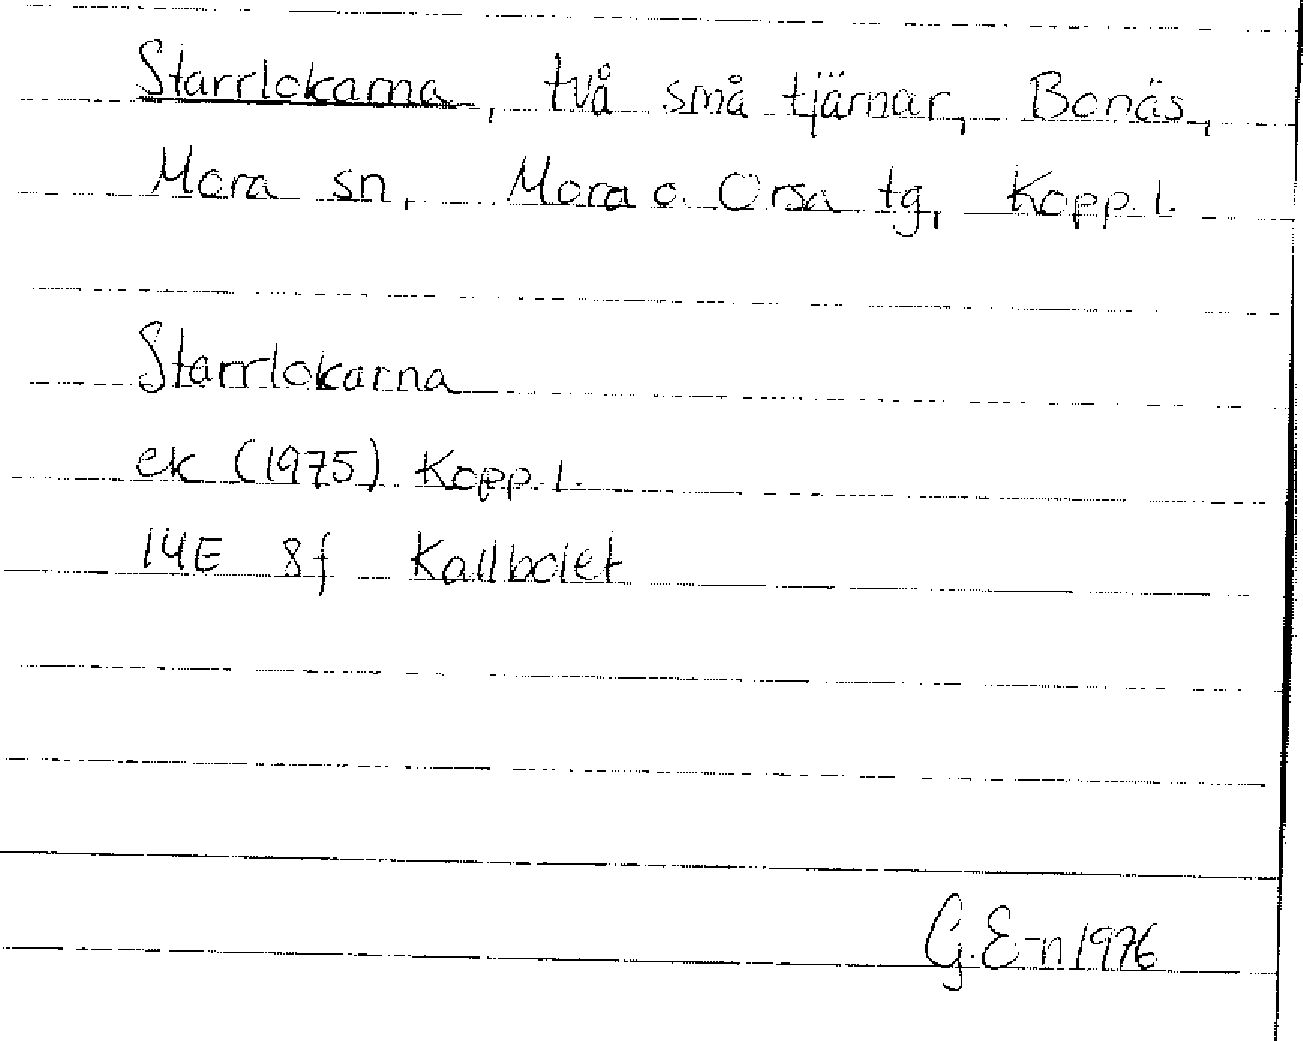 Starrlokarna, två små tjärnar, Bonäs,
Mora sn, Mora o. Orsa tg, Kopp. l.
Starrlokarna
ek (1975) Kopp. l.
14E 8f Kallbolet
G. E-n 1976